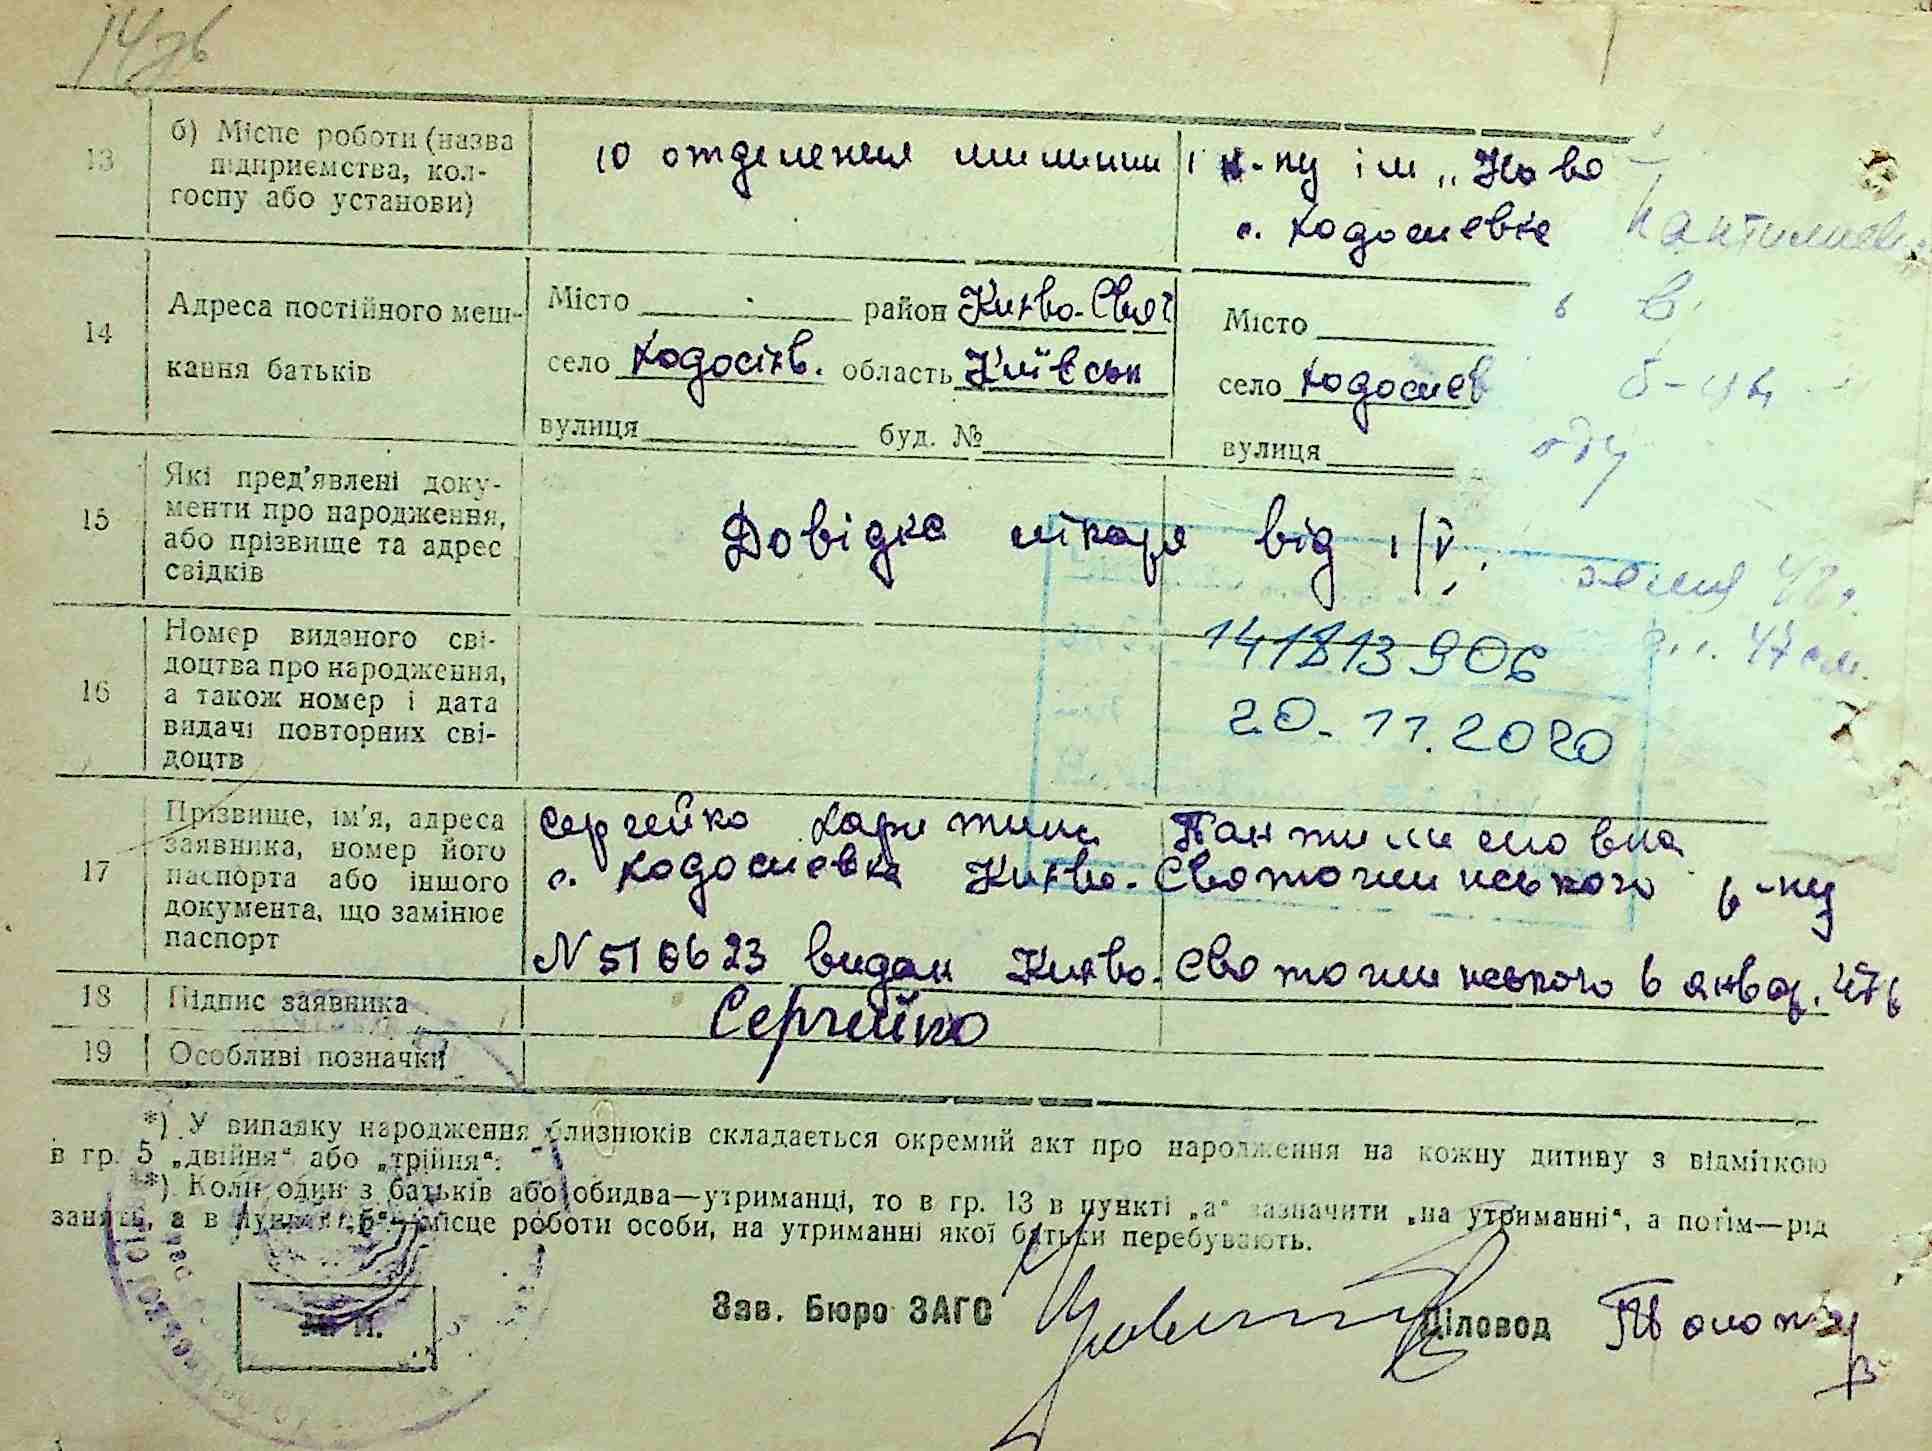 13 б) Місце роботи (назва підприємства, колгоспу або установи)
10 отделения милиции
к-пу ім „Ново
с. Ходосиевке
14 Адреса постійного мешкання батьків
Місто район Києво-Свят
село Ходосіев. область Київськ
вулиця буд. №
Місто
село Ходосиев
вулиця
15 Які пред'явлені документи про народження, або прізвище та адрес свідків
Довідка лікаря від 1/V
16 Номер виданого свідоцтва про народження, а також номер і дата видачі повторних свідоцтв
20.11.2020
17 Прізвище, ім'я, адреса заявника, номер його паспорта або іншого документа, що замінює паспорт
Сергейко Харитина Пантилимоовна
с. Ходосиевка Києво-Святошинського р-ну
N 510623 видан Києво-Святошинського в январ. 47
18 Підпис заявника
Сергейко
19 Особливі позначки
*) У випадку народження близнюків складається окремий акт про народження на кожну дитину з відміткою
в гр. 5 „двійня“ або „трійня“.
**) Коли один з батьків або обидва—утриманці, то в гр. 13 в пункті „а“ зазначити „на утриманні“, а потім—рід
занять, а в пункті „б“ місце роботи особи, на утриманні якої батьки перебувають.
Зав. Бюро ЗАГС
Діловод
М. П.